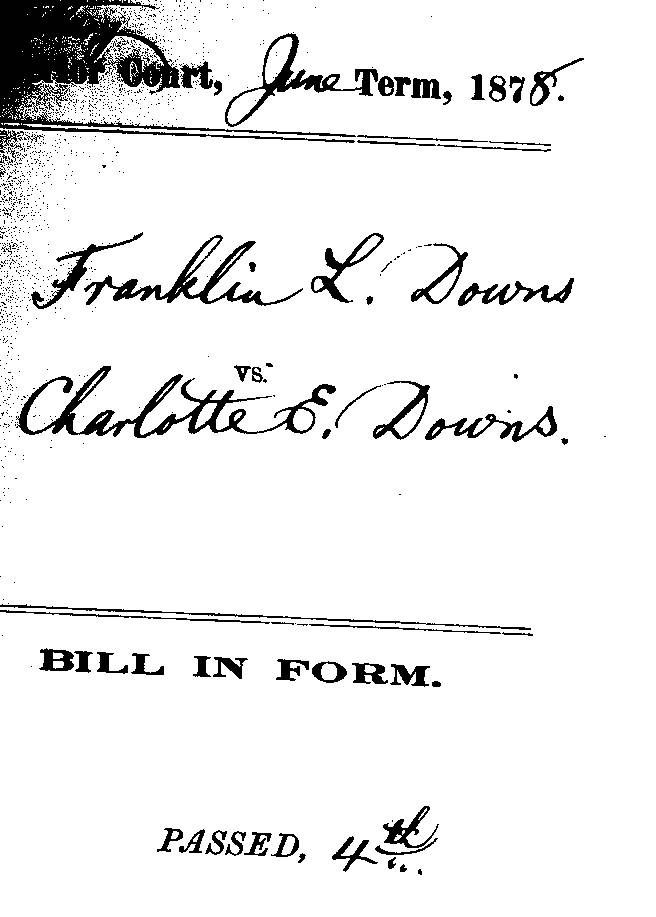 Court, June Term, 1878.
Franklin L. Downs
vs.
Charlotte E. Downs.
BILL IN FORM.
PASSED, 4th